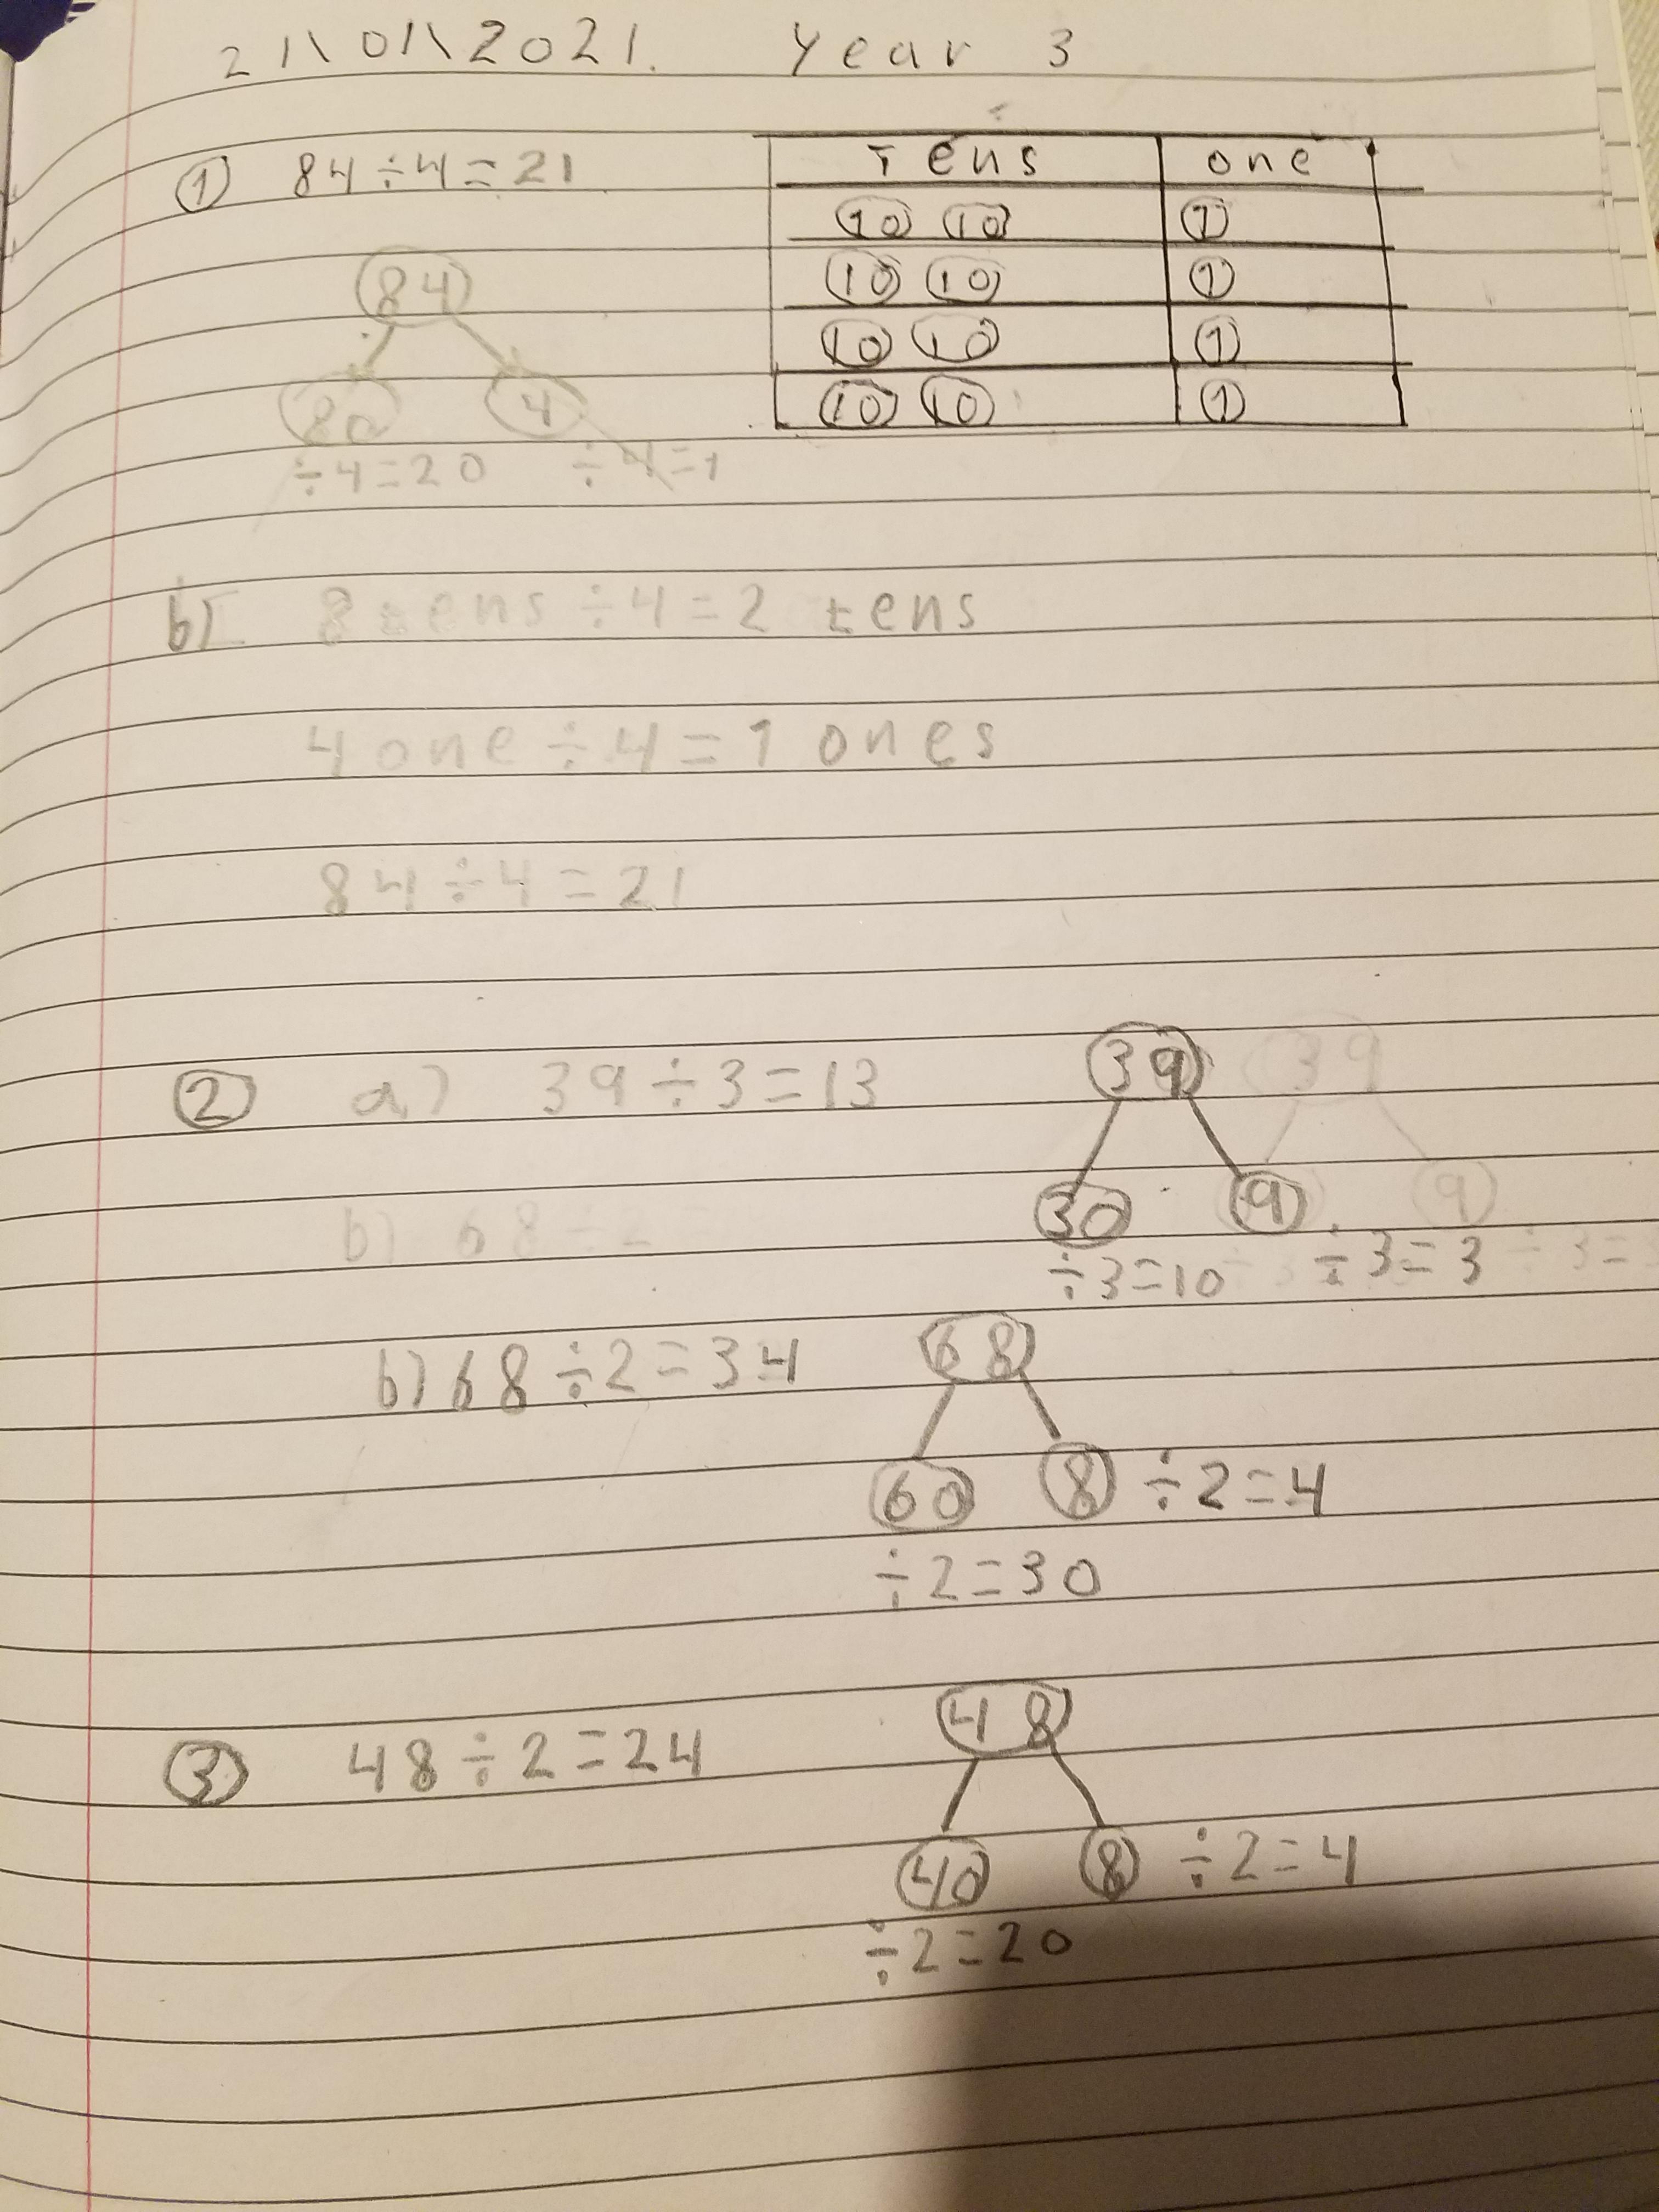 21\01\2021. Year 3
① 84÷4=21
Tens one
10 10 1
10 10 1
10 10 1
10 10 1
84
80 4
÷4=20 ÷4=1
b) 8 tens ÷4=2 tens
4 one ÷4=1 ones
84÷4=21
② a) 39÷3=13
39 39
30 9 9
÷3=10 ÷3=3 ÷3=
b) 68÷2=
b) 68÷2=34
68
60 8 ÷2=4
÷2=30
③ 48÷2=24
48
40 8 ÷2=4
÷2=20